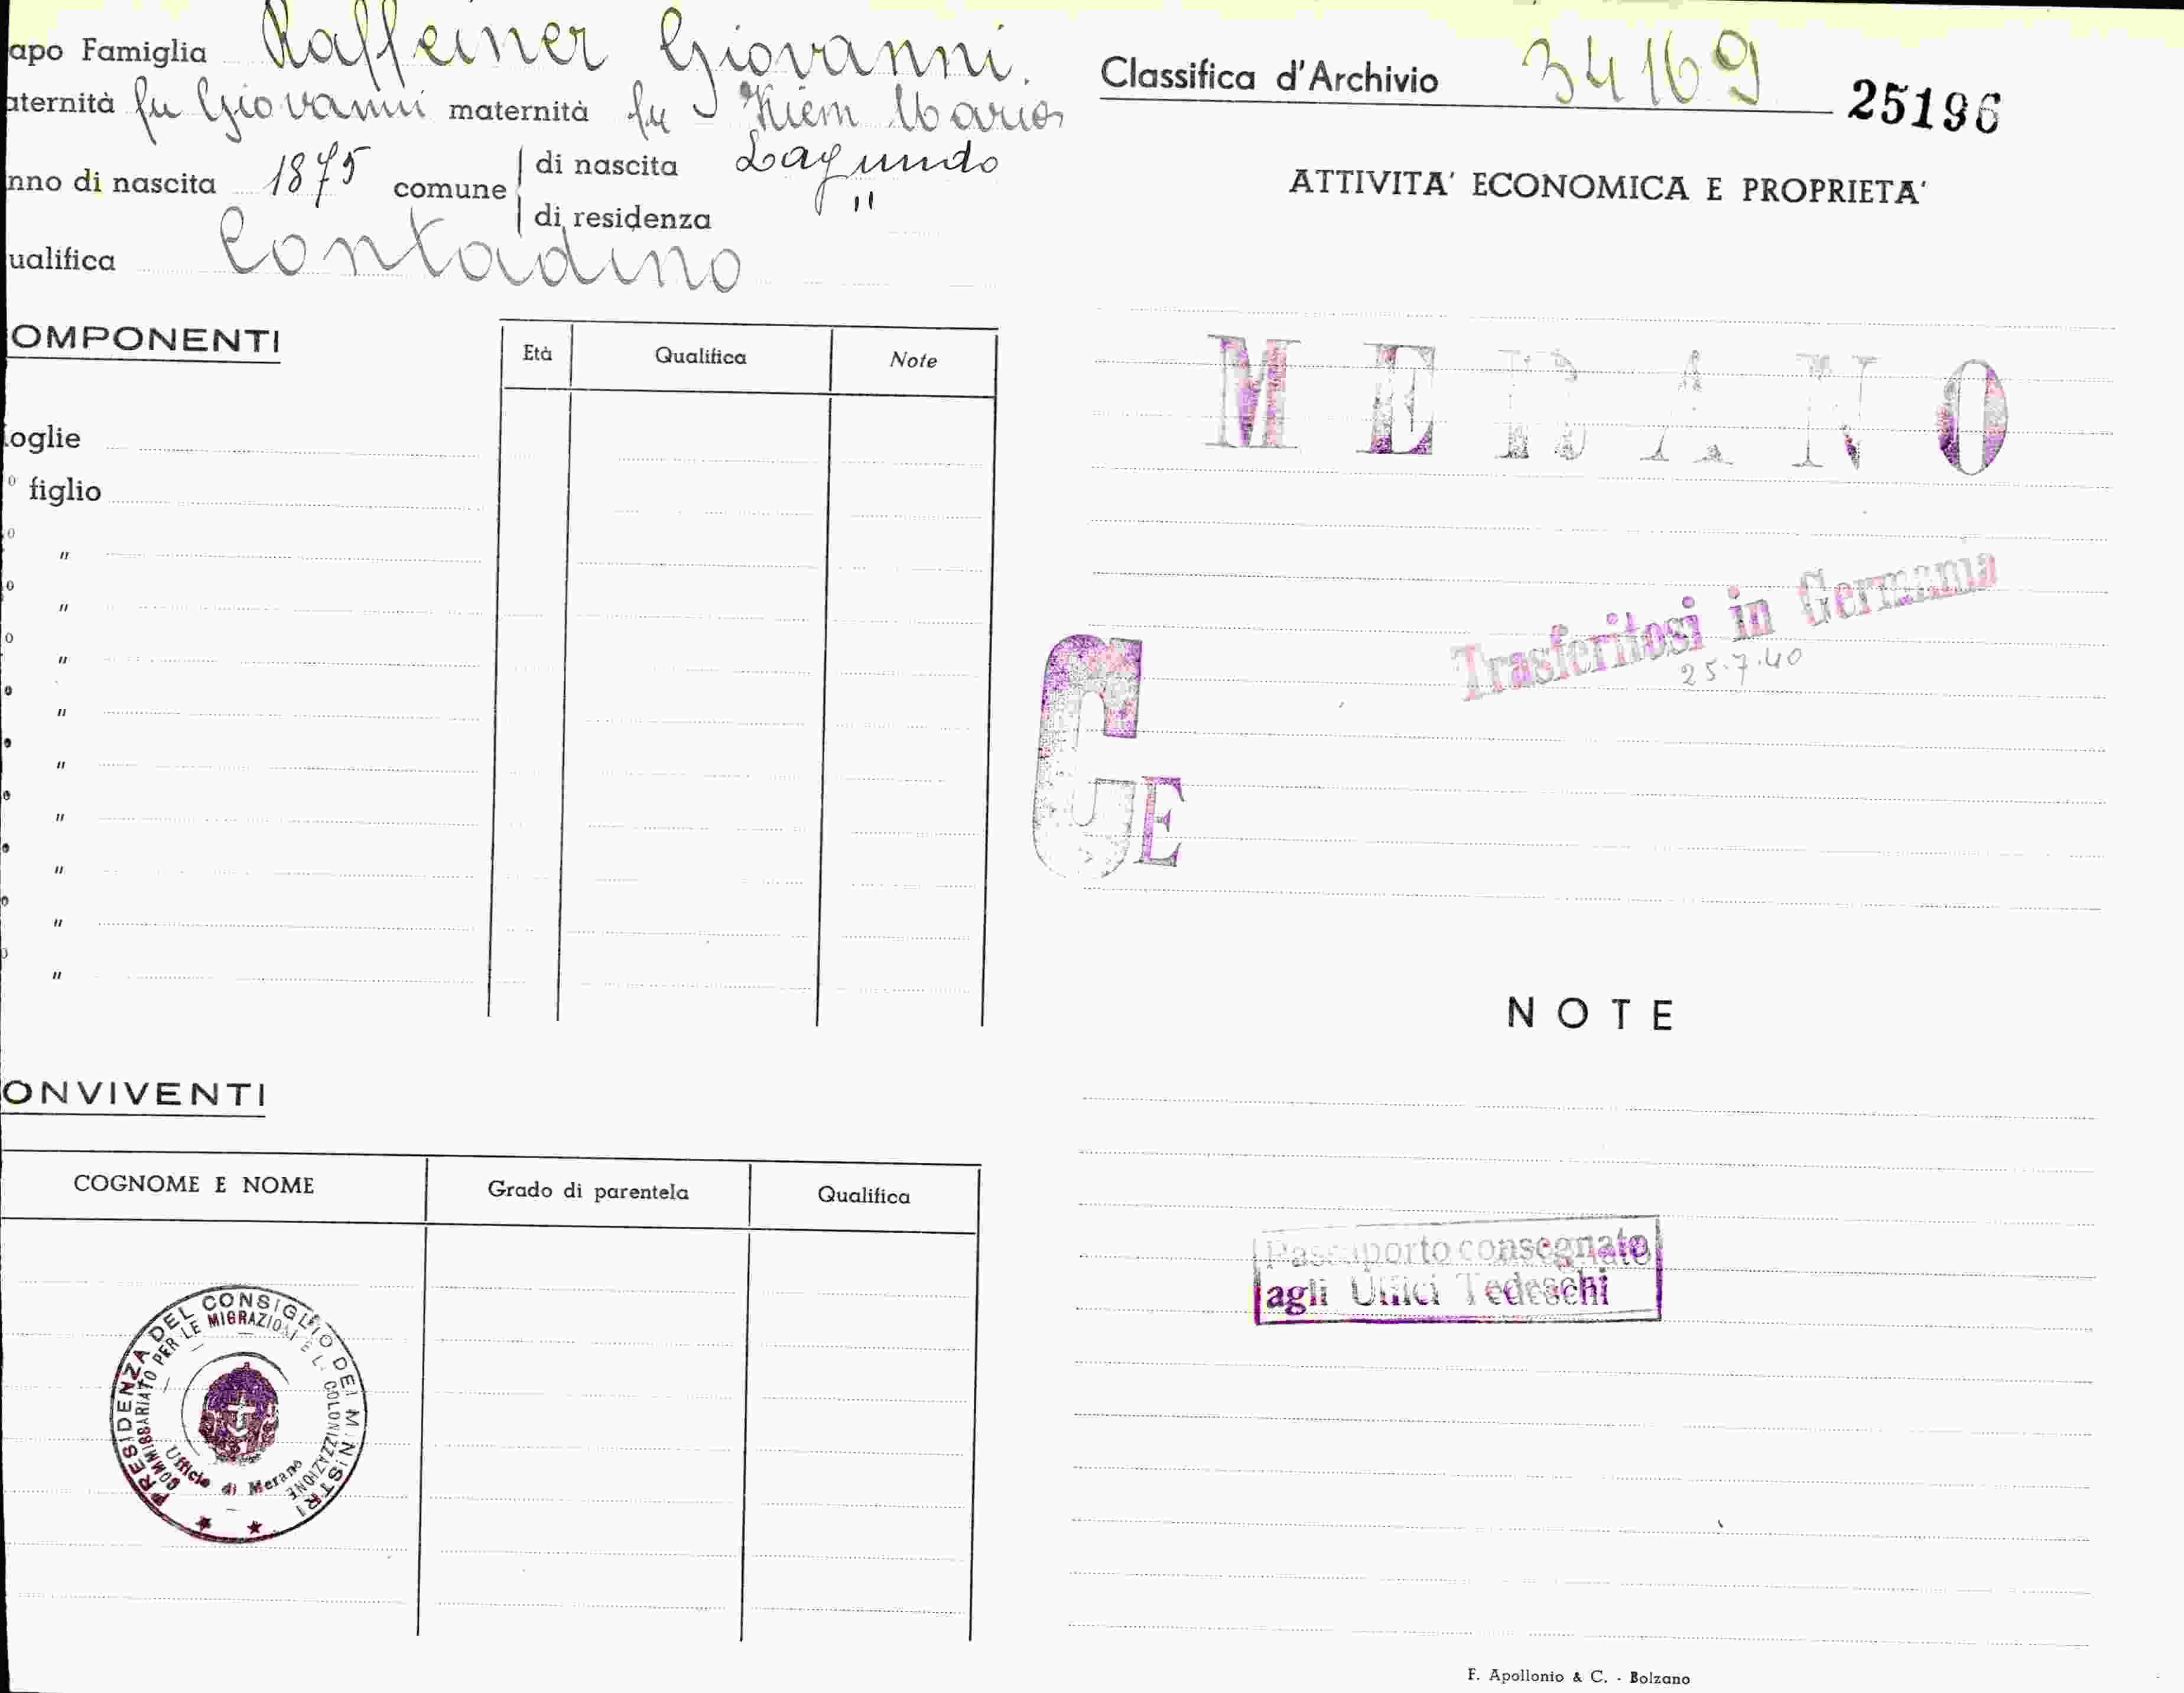 apo Famiglia Raffeiner Giovanni.
aternità fu Giovanni maternità fu Kiem Maria
nno di nascita 1875 comune di nascita Lagundo
di residenza "
ualifica Contadino
OMPONENTI
Età Qualifica Note
oglie
° figlio
o "
o "
o "
o "
o "
o "
o "
o "
o "
ONVIVENTI
COGNOME E NOME Grado di parentela Qualifica
PRESIDENZA DEL CONSIGLIO DEI MINISTRI
COMMISSARIATO PER LE MIGRAZIONI E L. COLONIZZAZIONE
Ufficio di Merano
Classifica d'Archivio 34169 25196
ATTIVITA' ECONOMICA E PROPRIETA'
MERANO
Trasferitosi in Germania
25.7.40
G E
NOTE
Passaporto consegnato
agli Uffici Tedeschi
F. Apollonio & C. - Bolzano